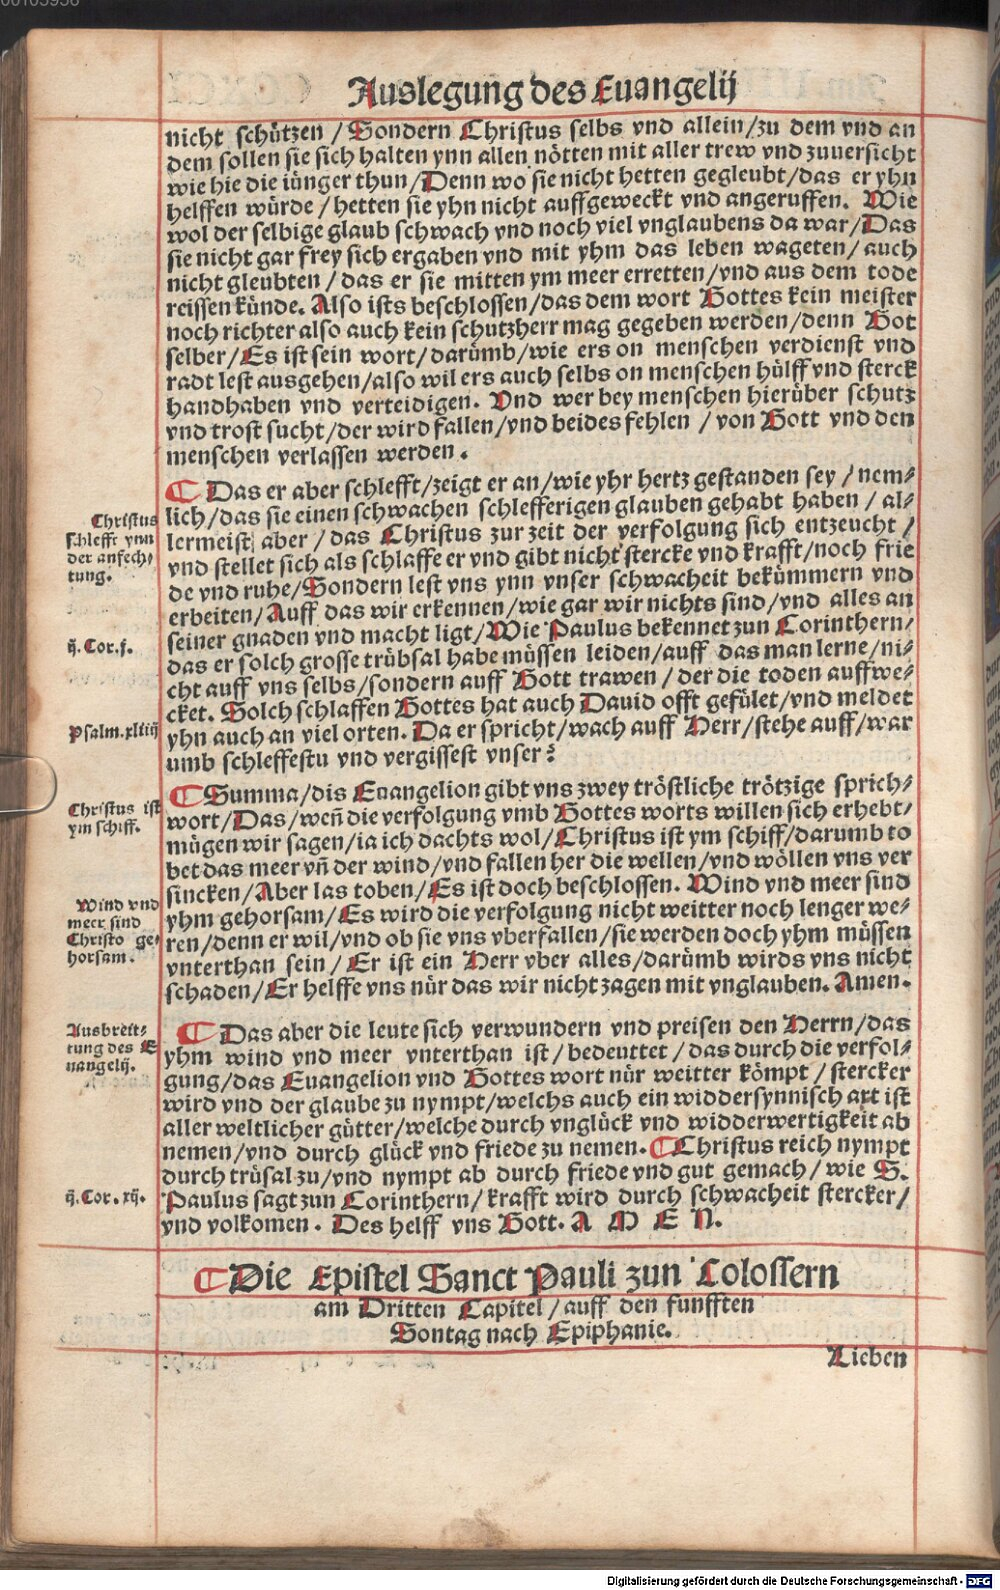 Auslegung des Euangelij
nicht schützen / Sondern Christus selbs vnd allein/zu dem vnd an
dem sollen sie sich halten ynn allen nötten mit aller trew vnd zuuersicht
wie hie die iünger thun/Denn wo sie nicht hetten gegleubt/das er yhn
helffen würde / hetten sie yhn nicht auffgeweckt vnd angeruffen. Wie
wol der selbige glaub schwach vnd noch viel vnglaubens da war/Das
sie nicht gar frey sich ergaben vnd mit yhm das leben wageten/auch
nicht gleubten/das er sie mitten ym meer erretten/vnd aus dem tode
reissen künde. Also ists beschlossen/das dem wort Gottes kein meister
noch richter also auch kein schutzherr mag gegeben werden/denn Got
selber/Es ist sein wort/darümb/wie ers on menschen verdienst vnd
radt lest ausgehen/also wil ers auch selbs on menschen hülff vnd sterck
handhaben vnd verteidigen. Vnd wer bey menschen hierüber schutz
vnd trost sucht/der wird fallen/vnd beides fehlen / von Gott vnd den
menschen verlassen werden.
Das er aber schlefft/zeigt er an/wie yhr hertz gestanden sey / nem-
lich/das sie einen schwachen schlefferigen glauben gehabt haben / al-
lermeist aber / das Christus zur zeit der verfolgung sich entzeucht /
vnd stellet sich als schlaffe er vnd gibt nicht stercke vnd krafft/noch frie
de vnd ruhe/Sondern lest vns ynn vnser schwacheit bekümmern vnd
erbeiten/Auff das wir erkennen/wie gar wir nichts sind/vnd alles an
seiner gnaden vnd macht ligt/Wie Paulus bekennet zun Corinthern/
das er solch grosse trübsal habe müssen leiden/auff das man lerne/ni-
cht auff vns selbs/sondern auff Gott trawen / der die toden auffwe-
cket. Solch schlaffen Gottes hat auch Dauid offt gefület/vnd meldet
yhn auch an viel orten. Da er spricht/wach auff Herr/stehe auff/war
umb schleffestu vnd vergissest vnser?
Christus
schlefft ynn
der anfech-
tung.
ij. Cor. j.
Psalm. xliiij
Summa/dis Euangelion gibt vns zwey tröstliche trötzige sprich-
wort/Das/weñ die verfolgung vmb Gottes worts willen sich erhebt/
mügen wir sagen/ia ich dachts wol/Christus ist ym schiff/darumb to
bet das meer vñ der wind/vnd fallen her die wellen/vnd wöllen vns ver
sincken/Aber las toben/Es ist doch beschlossen. Wind vnd meer sind
yhm gehorsam/Es wird die verfolgung nicht weitter noch lenger we-
ren/denn er wil/vnd ob sie vns vberfallen/sie werden doch yhm müssen
vnterthan sein / Er ist ein Herr vber alles/darümb wirds vns nicht
schaden/Er helffe vns nür das wir nicht zagen mit vnglauben. Amen.
Christus ist
ym schiff.
Wind vnd
meer sind
Christo ge-
horsam.
Das aber die leute sich verwundern vnd preisen den Herrn/das
yhm wind vnd meer vnterthan ist/bedeuttet/das durch die verfol-
gung/das Euangelion vnd Gottes wort nür weitter kömpt / stercker
wird vnd der glaube zu nympt/welchs auch ein widdersynnisch art ist
aller weltlicher gütter/welche durch vnglück vnd widderwertigkeit ab
nemen/vnd durch glück vnd friede zu nemen. Christus reich nympt
durch trüsal zu/vnd nympt ab durch friede vnd gut gemach / wie S.
Paulus sagt zun Corinthern/krafft wird durch schwacheit stercker/
vnd volkomen. Des helff vns Gott. A M E N.
Ausbreit-
tung des E
uangelij.
ij. Cor. xij.
Die Epistel Sanct Pauli zun Colossern
am Dritten Capitel/auff den funfften
Sontag nach Epiphanie.
Lieben
Digitalisierung gefördert durch die Deutsche Forschungsgemeinschaft - DFG